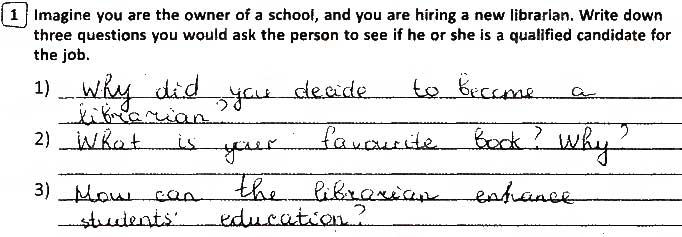 1 Imagine you are the owner of a school, and you are hiring a new librarian. Write down
three questions you would ask the person to see if he or she is a qualified candidate for
the job.
1) Why did you decide to become a
librarian?
2) What is your favourite book? Why?
3) How can the librarian enhance
students' education?